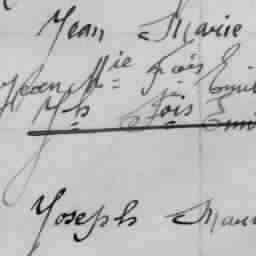 Jean Marie
Jean Mie Fois Emil
Jh Fois Emi
Joseph Mari